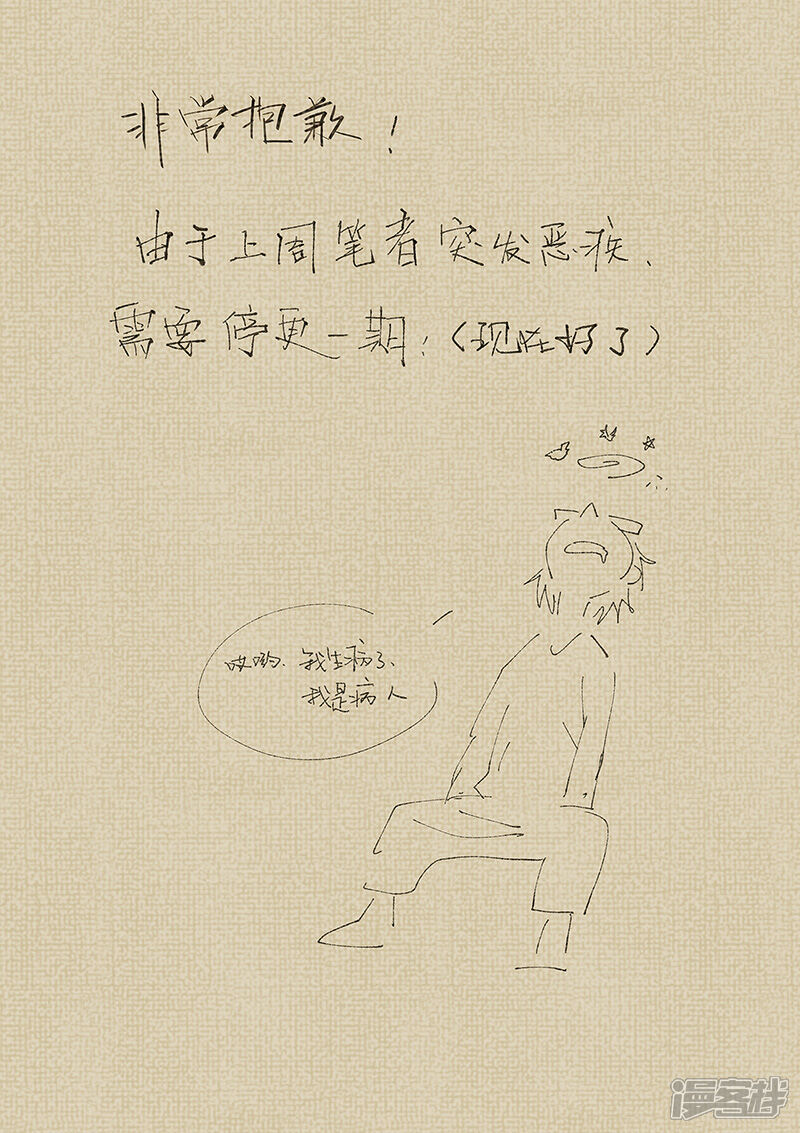 非常抱歉!
由于上周笔者突发恶疾、
需要停更一期;(现在好了)
哎哟、我生病了、
我是病人
漫客栈